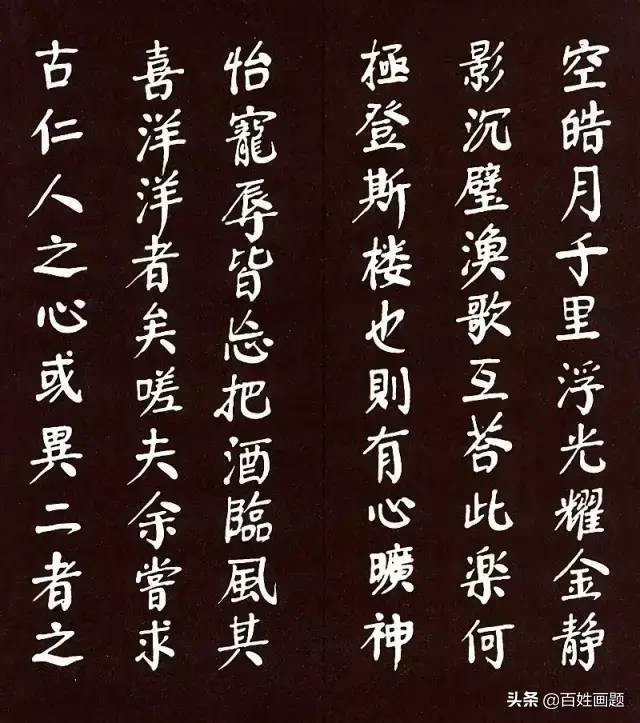 空皓月千里浮光耀金静
影沉璧渔歌互荅此楽何
極登斯楼也則有心曠神
怡寵辱皆忘把酒臨風其
喜洋洋者矣嗟夫余嘗求
古仁人之心或異二者之
头条 @百姓画题